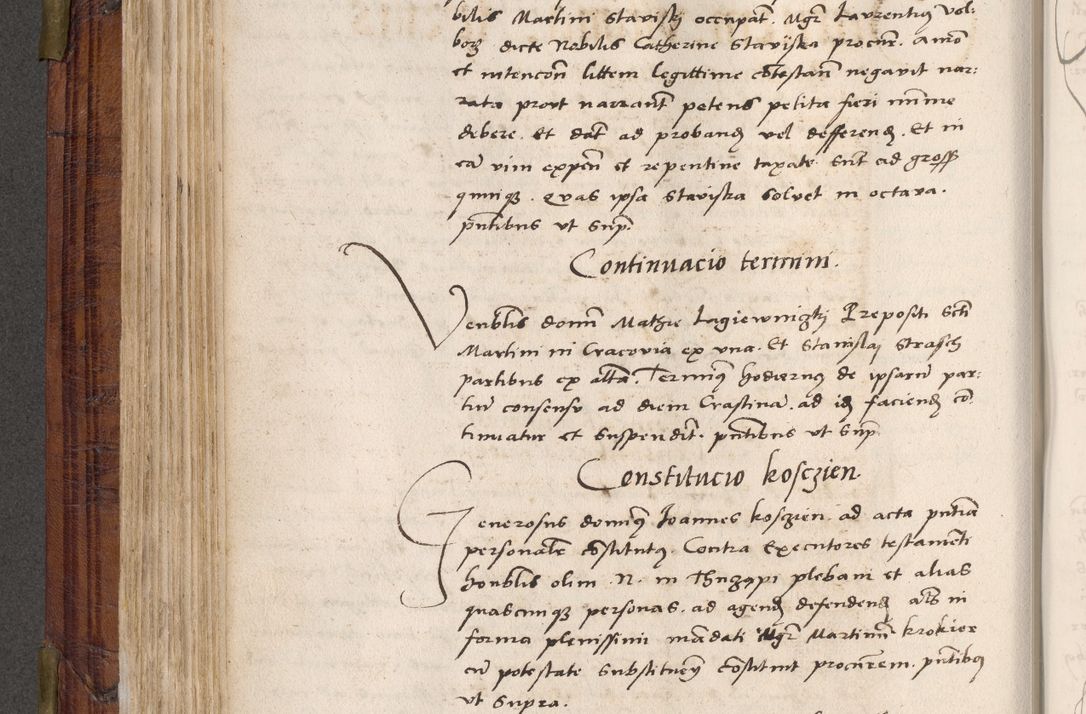 bilis Martini Staviski occupat. Mgr Laurentius Vol:
borz dicte Nobilis Catherine Stavijska procur. animo
et intencon littem legittime contestan negavit nar:
rata prout narrant petens petita fieri minime
debere. et dat ad proband vel defferend. Et in
ea vim expen et repentine taxate sunt ad gross
quinque. Quas ipsa Staviska solvet in octava.
pntibus ut Sup.
Continuacio termini.
Venblis domni Mathie Lagiewnizki Prepositi Scti
Martini in Cracovia ex una. Et Stanislaj Strasch
partibus ex altera. Terminus hodiernus de ipsarum par:
tium consensu ad diem Crastina. ad id faciend con
tinuatur et suspendit. pntibus ut Sup
Constitucio Kosczien
Generosus dominus Joannes Kosczien. ad acta pntia
personale constitutus. Contra Executores testamenti
honblis olim .N. in plebani et alias
quascunque personas. ad agend defendend in
forma plenissimi mandati Mgr Martinum Krokier
cum potestate substituendi constituit procurem. pntibus
ut Supra.